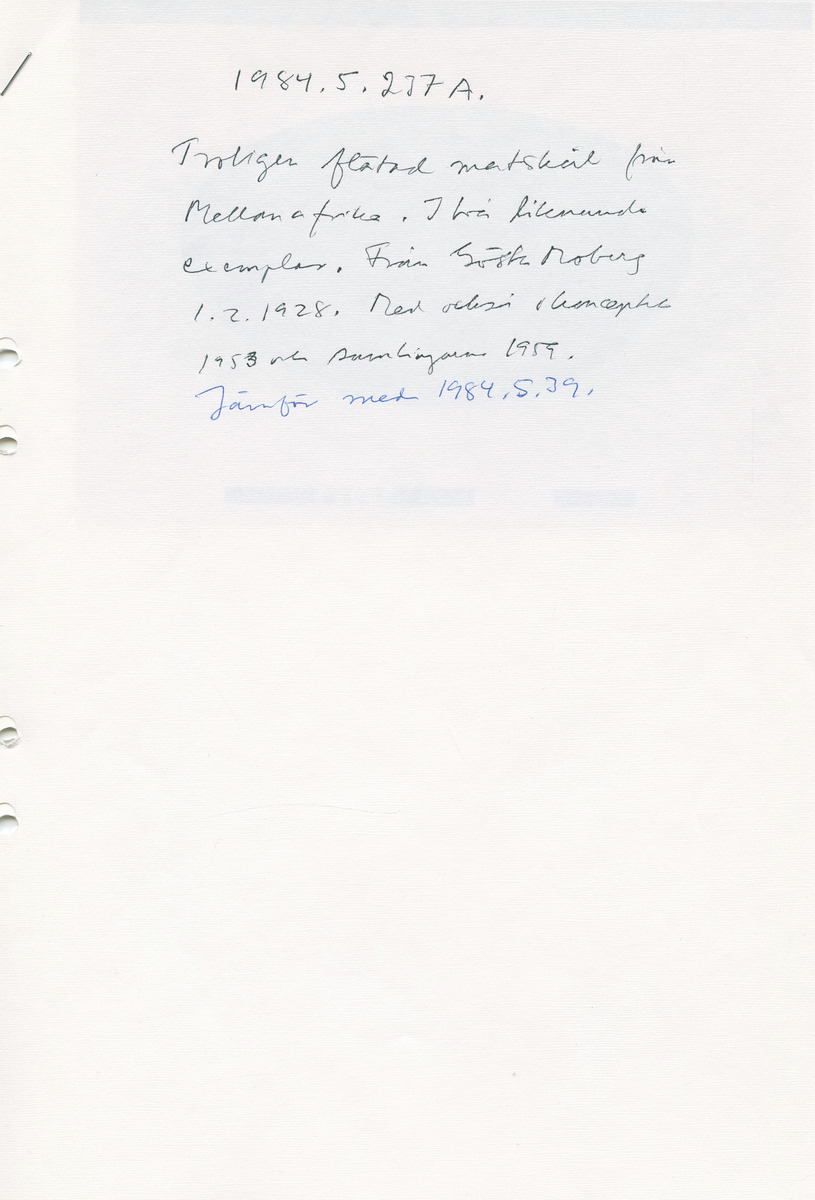 1984.5.237A.
Troligen flätad matskål från
Mellanafrika. I två liknande
exemplar. Från Gösta Moberg
1.2.1928. Med också i koncepten
1953 och samlingarna 1959.
Jämför med 1984.5.39.